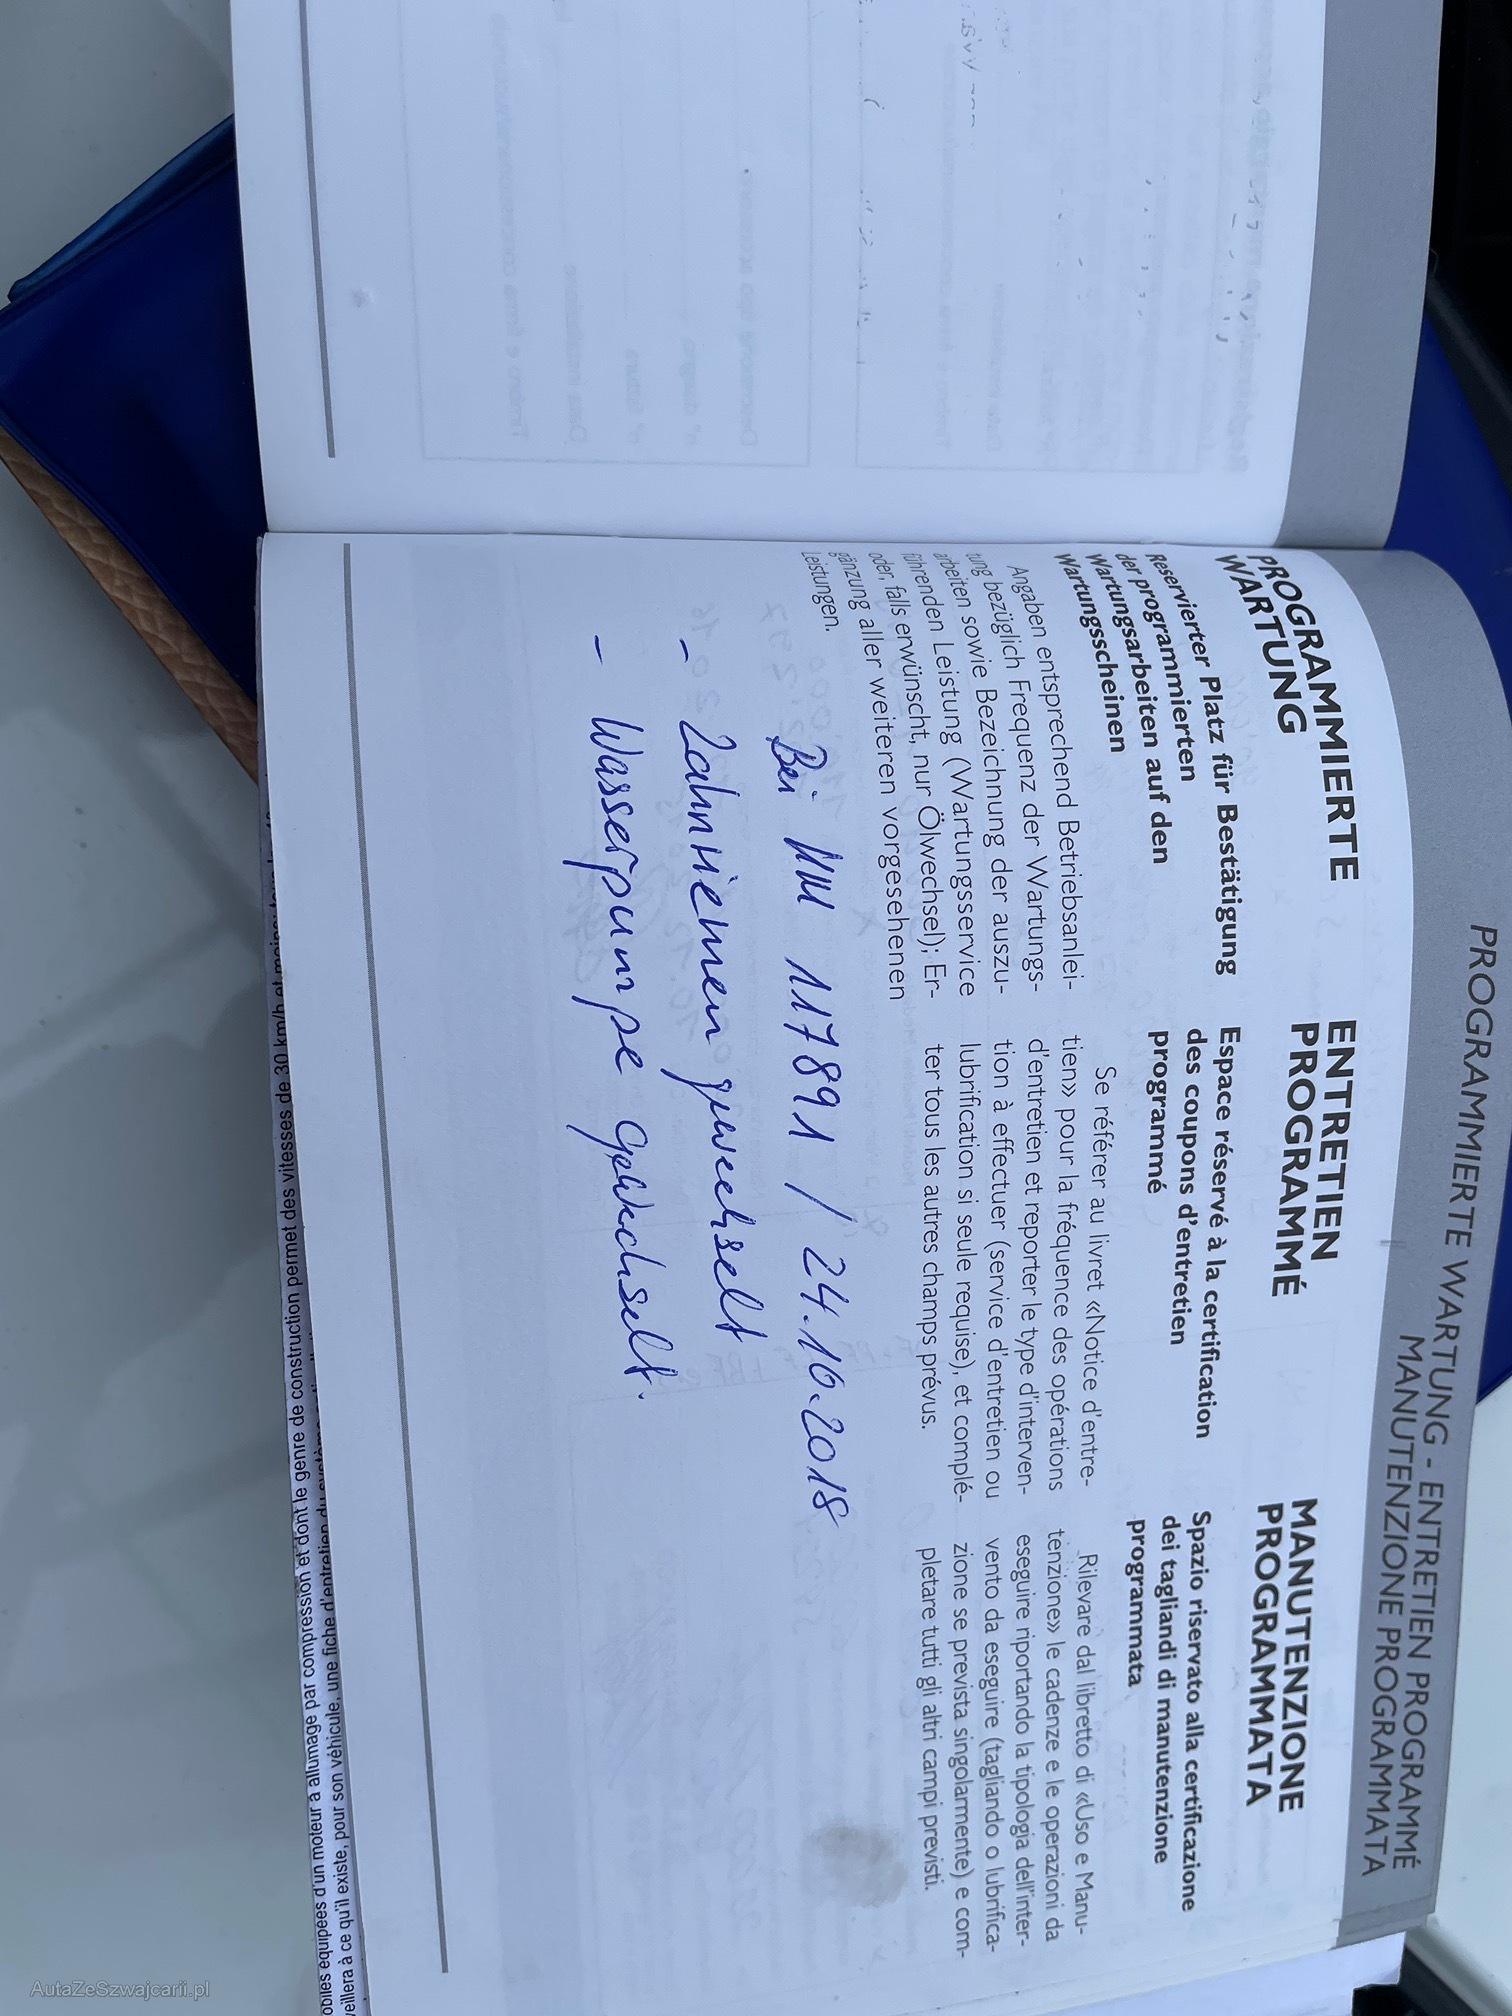 PROGRAMMIERTE WARTUNG - ENTRETIEN PROGRAMMÉ
MANUTENZIONE PROGRAMMATA
PROGRAMMIERTE
WARTUNG
Reservierter Platz für Bestätigung
der programmierten
Wartungsarbeiten auf den
Wartungsscheinen
Angaben entsprechend Betriebsanlei-
tung bezüglich Frequenz der Wartungs-
arbeiten sowie Bezeichnung der auszu-
führenden Leistung (Wartungsservice
oder, falls erwünscht, nur Ölwechsel); Er-
gänzung aller weiteren vorgesehenen
Leistungen.
ENTRETIEN
PROGRAMMÉ
Espace réservé à la certification
des coupons d'entretien
programmé
Se référer au livret «Notice d'entre-
tien» pour la fréquence des opérations
d'entretien et reporter le type d'interven-
tion à effectuer (service d'entretien ou
lubrification si seule requise), et complé-
ter tous les autres champs prévus.
MANUTENZIONE
PROGRAMMATA
Spazio riservato alla certificazione
dei tagliandi di manutenzione
programmata
Rilevare dal libretto di «Uso e Manu-
tenzione» le cadenze e le operazioni da
eseguire riportando la tipologia dell'inter-
vento da eseguire (tagliando o lubrifica-
zione se prevista singolarmente) e com-
pletare tutti gli altri campi previsti.
Bei KM 117891 / 24.10.2018
- Zahnriemen gewechselt
- Wasserpumpe gewechselt.
30 km/h et
ogiées équipées d'un moteur à allumage par compression et dont le genre de construction permet des vitesses de
veillera à ce qu'il existe, pour son véhicule, une fiche d'entretien du
AutaZeSzwajcarii.pl